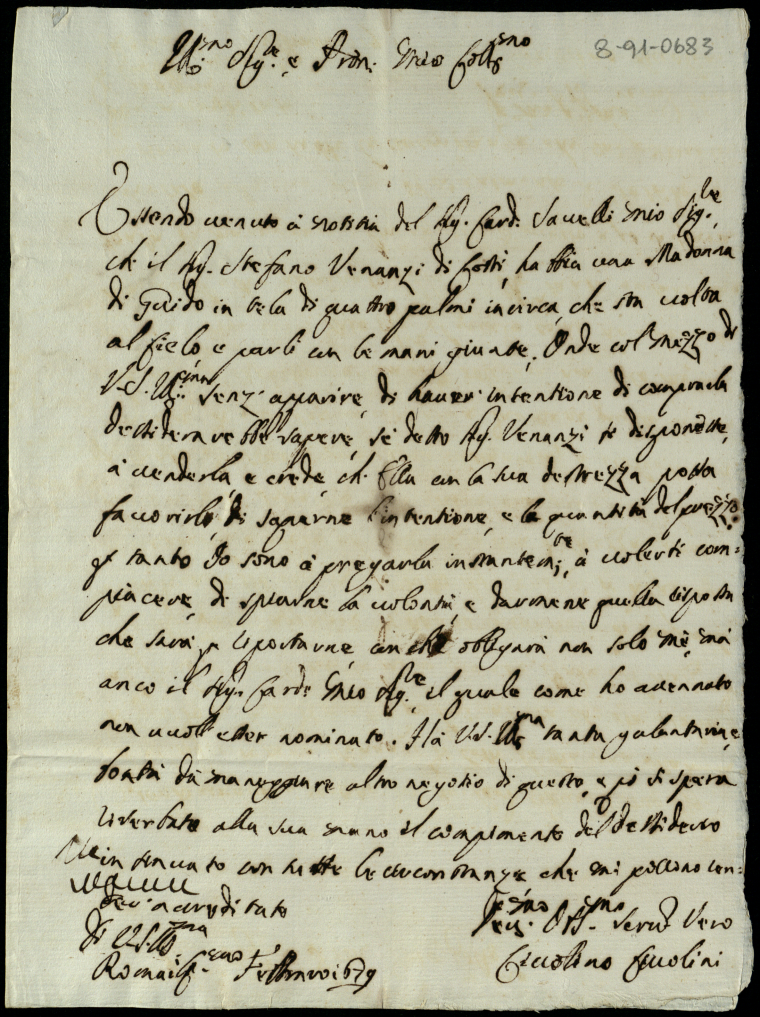 8-91-0683
Ill.mo Sig.re e Pron: mio Coll.mo
Essendo venuto à notitia del Sig. Card. Savelli mio Sig.re,
che il Sig. Stefano Venanzi di costì, habbia una Madonna
di Guido in tela di quattro palmi incirca, che sta volta
al Cielo e parli con le mani giunte. Onde col mezzo di
V.S. Ill.ma senz' apparire, di haver' intentione di comprarla
desiderarebbe sapere, se detto Sig. Venanzi si disponesse,
à venderla, e crede, ch' Ella con la sua destrezza possa
favorirlo, di saperne l'intentione, e la quantità del prezzo.
p tanto Io sono à pregarla instantem.te, à volersi com=
piacere, di spiarne la volontà, e darmene quella risposta
che sarà p riportarne con che obbligarà non solo mè, mà
anco il Sig. Card. mio Sig.re, il quale come ho accennato
non vuol' esser nominato. Hà V.S. Ill.ma tanta galantaria, e
bontà da maneggiare altro negotio di questo, e però si spera
riserbato alla sua mano il compimento del desiderio
insinuato con tutte le circonstanze che mi possono ren=
der' accreditato
Di V.S. Ill.ma
Roma Febbraro 1679
Dev.mo Obl.mo Serv.r Vero
Ciccolino Ciccolini